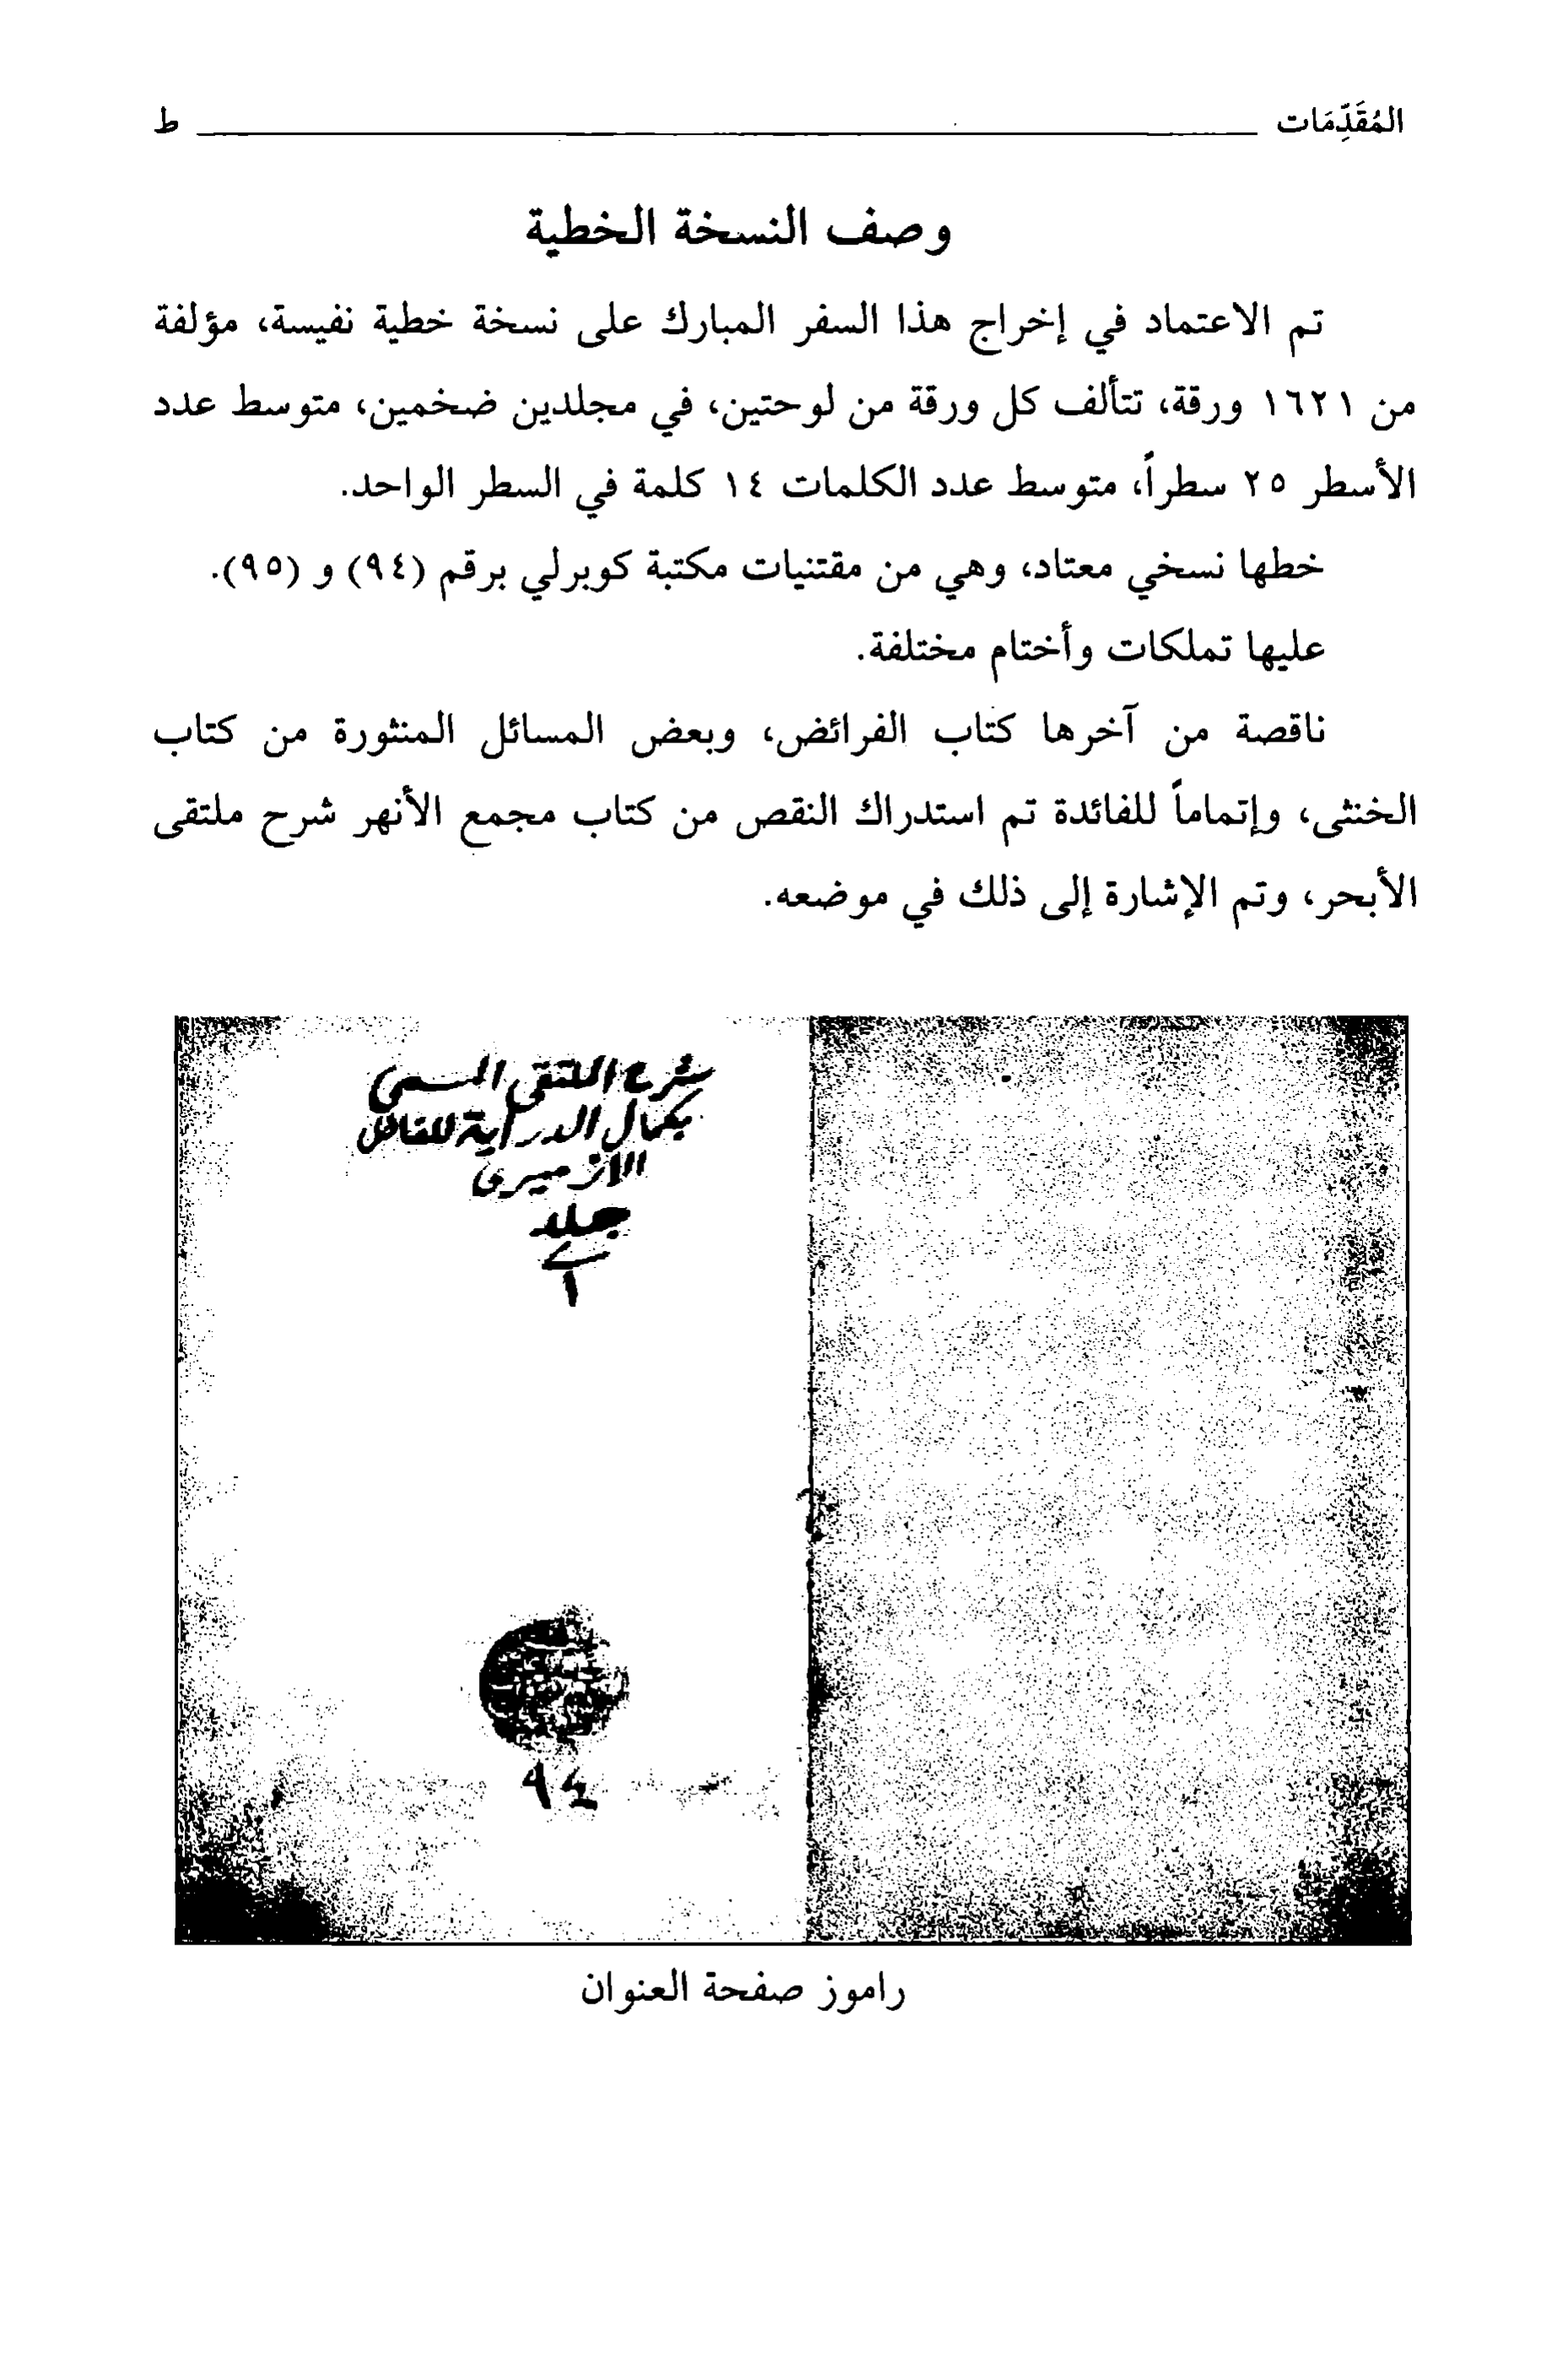 المُقَدِّمَات ط
وصف النسخة الخطية
تم الاعتماد في إخراج هذا السفر المبارك على نسخة خطية نفيسة، مؤلفة
من ١٦٢١ ورقة، تتألف كل ورقة من لوحتين، في مجلدين ضخمين، متوسط عدد
الأسطر ٢٥ سطراً، متوسط عدد الكلمات ١٤ كلمة في السطر الواحد.
خطها نسخي معتاد، وهي من مقتنيات مكتبة كوبرلي برقم (٩٤) و (٩٥).
عليها تملكات وأختام مختلفة.
ناقصة من آخرها كتاب الفرائض، وبعض المسائل المنثورة من كتاب
الخنثى، وإتماماً للفائدة تم استدراك النقص من كتاب مجمع الأنهر شرح ملتقى
الأبحر، وتم الإشارة إلى ذلك في موضعه.
شرح الملتقى المسمى
بكمال الدراية للفاضل
الازميرى
جلد
١
٩٤
راموز صفحة العنوان